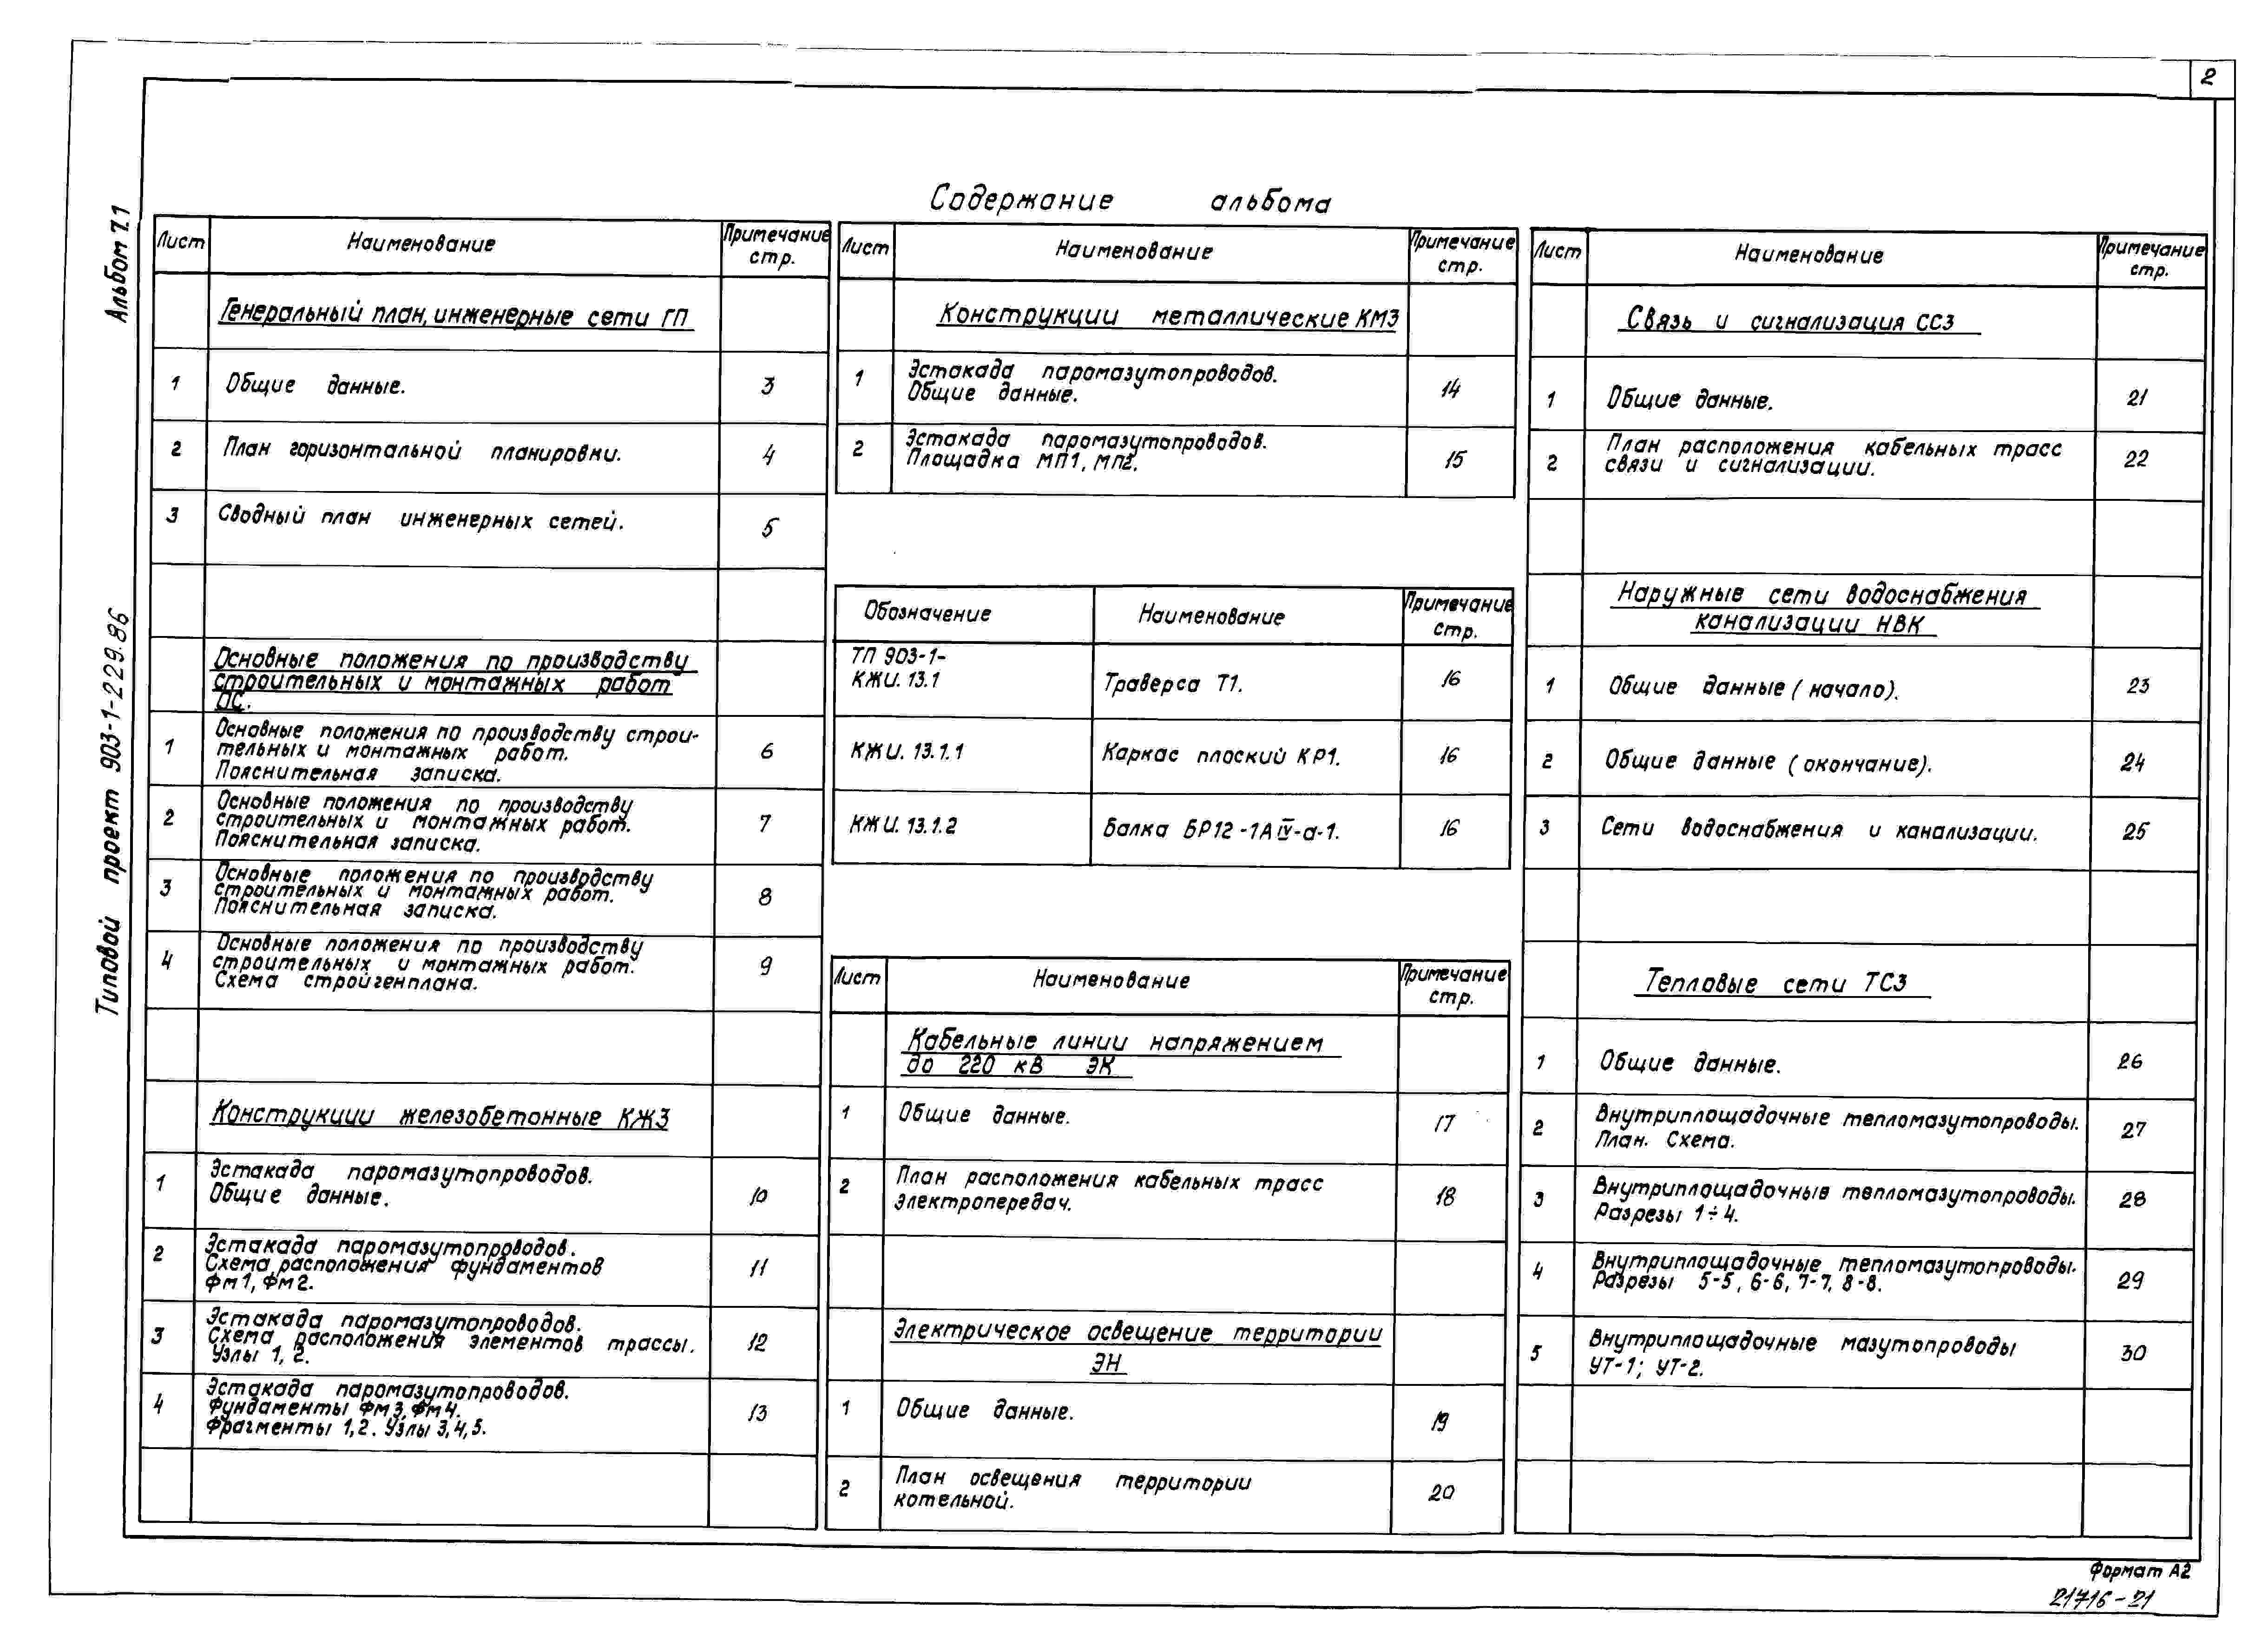 2
Альбом 7.1
Типовой проект 903-1-229.86
Содержание альбома
Лист Наименование Примечание стр.
Генеральный план, инженерные сети ГП
1 Общие данные. 3
2 План горизонтальной планировки. 4
3 Сводный план инженерных сетей. 5
Основные положения по производству
строительных и монтажных работ
ПС.
1 Основные положения по производству строи-
тельных и монтажных работ. 6
Пояснительная записка.
2 Основные положения по производству
строительных и монтажных работ. 7
Пояснительная записка.
3 Основные положения по производству
строительных и монтажных работ. 8
Пояснительная записка.
4 Основные положения по производству
строительных и монтажных работ. 9
Схема стройгенплана.
Конструкции железобетонные КЖ3
1 Эстакада паромазутопроводов.
Общие данные. 10
2 Эстакада паромазутопроводов.
Схема расположения фундаментов 11
Фм1, Фм2.
3 Эстакада паромазутопроводов.
Схема расположения элементов трассы. 12
Узлы 1, 2.
4 Эстакада паромазутопроводов.
Фундаменты Фм3, Фм4. 13
Фрагменты 1,2. Узлы 3,4,5.
Лист Наименование Примечание стр.
Конструкции металлические КМ3
1 Эстакада паромазутопроводов.
Общие данные. 14
2 Эстакада паромазутопроводов.
Площадка МП1, МП2. 15
Обозначение Наименование Примечание стр.
ТП 903-1-
КЖИ. 13.1 Траверса Т1. 16
КЖИ. 13.1.1 Каркас плоский КР1. 16
КЖИ. 13.1.2 Балка БР12-1АIV-а-1. 16
Лист Наименование Примечание стр.
Кабельные линии напряжением
до 220 кВ ЭК
1 Общие данные. 17
2 План расположения кабельных трасс
электропередач. 18
Электрическое освещение территории
ЭН
1 Общие данные. 19
2 План освещения территории
котельной. 20
Лист Наименование Примечание стр.
Связь и сигнализация СС3
1 Общие данные. 21
2 План расположения кабельных трасс
связи и сигнализации. 22
Наружные сети водоснабжения
канализации НВК
1 Общие данные (начало). 23
2 Общие данные (окончание). 24
3 Сети водоснабжения и канализации. 25
Тепловые сети ТС3
1 Общие данные. 26
2 Внутриплощадочные тепломазутопроводы.
План. Схема. 27
3 Внутриплощадочные тепломазутопроводы.
Разрезы 1÷4. 28
4 Внутриплощадочные тепломазутопроводы.
Разрезы 5-5, 6-6, 7-7, 8-8. 29
5 Внутриплощадочные мазутопроводы
УТ-1; УТ-2. 30
Формат А2
21716-21